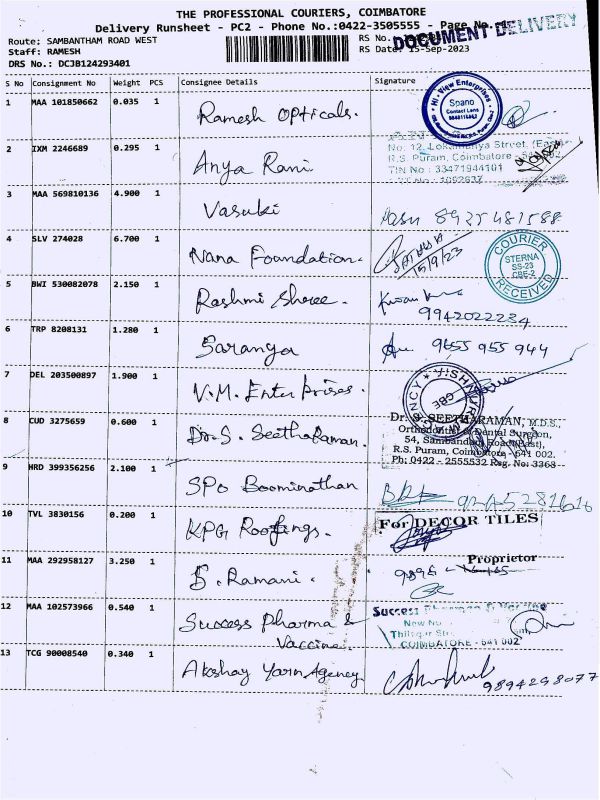 THE PROFESSIONAL COURIERS, COIMBATORE
Delivery Runsheet - PC2 - Phone No.:0422-3505555 - Page No.
DOCUMENT DELIVERY
Route: SAMBANTHAM ROAD WEST
RS No.
Staff: RAMESH
RS Date 15-Sep-2023
DRS No.: DCJB124293401
S No Consignment No Weight PCS Consignee Details Signature
1 MAA 101850662 0.035 1 Ramesh Opticals.
Hi-View Enterprises
Spano
Contact Lens
2 IXM 2246689 0.295 1 Anya Rani
No: 12, Street, (East)
R.S. Puram, Coimbatore - 641 002.
TIN No : 33471944101
3 MAA 569810136 4.900 1 Vasuki
Vasu 8925481588
4 SLV 274028 6.700 1 Nana Foundation.
15/9/23
COURIER
STERNA
SS-23
CBE-2
RECEIVED
5 BWI 530082078 2.150 1 Rashmi Shree.
9942022234
6 TRP 8208131 1.280 1 Saranya
9655 955 944
7 DEL 203500897 1.900 1 V.M. Enterprises.
CBE
8 CUD 3275659 0.600 1 Dr. S. Seetharaman.
Dr. S. SEETHARAMAN, M.D.S.,
Orthodontist & Dental Surgeon,
54, Sambandam Road (East),
R.S. Puram, Coimbatore - 641 002.
Ph: 0422 - 2555532 Reg. No: 3368
9 HRD 399356256 2.100 1 SPO Boominathan
10 TVL 3830156 0.200 1 KPG Roofings.
For DECOR TILES
Proprietor
11 MAA 292958127 3.250 1 S. Ramani.
12 MAA 102573966 0.540 1 Success Pharma &
Vaccine.
Success
New No
COIMBATORE - 641 002
13 TCG 90008540 0.340 1 Akshay Yarn Agency
9894298077